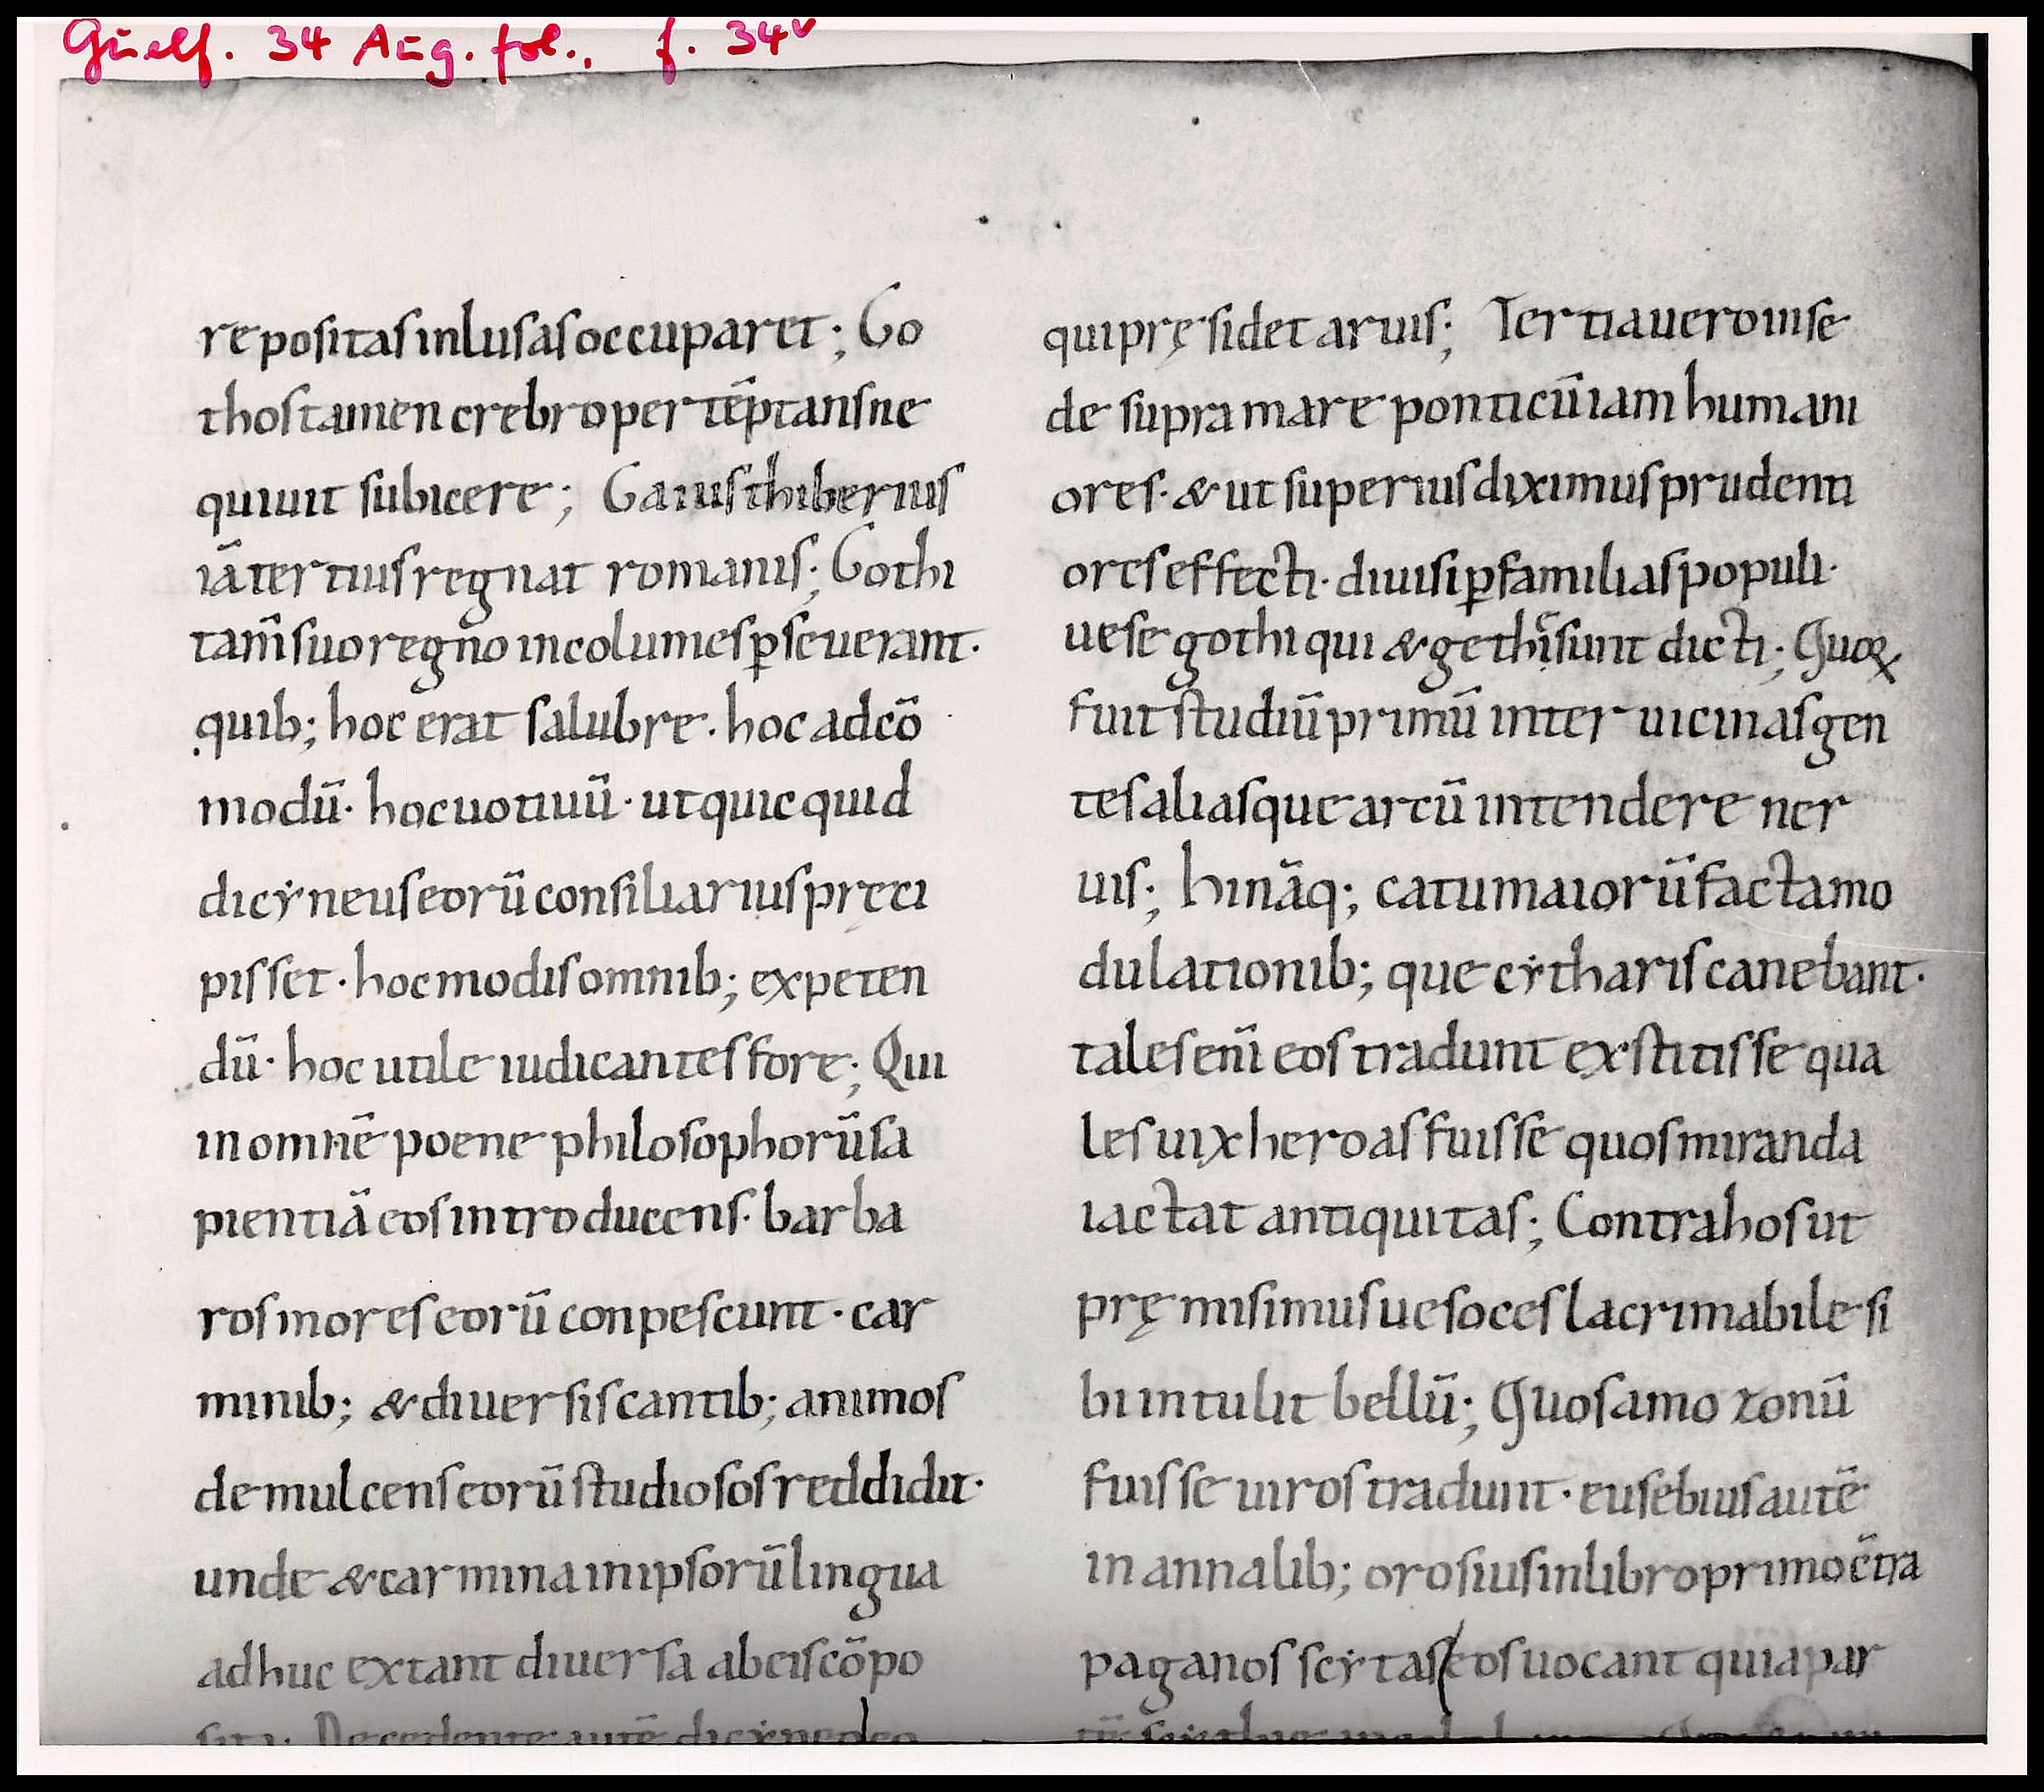 Guelf. 34 Aug. fol., f. 34v
repositas inlusas occuparet; Go
thos tamen crebro pertẽptans ne
quiuit subicere; Gaius thiberius
iã tertius regnat romanis; Gothi
tam̃ suo regno incolumes ꝑseuerant·
quib; hoc erat salubre· hoc adcõ
modũ· hoc uotiuũ· ut quicquid
dicẏneus eorũ consiliarius pręci
pisset· hoc modis omnib; expeten
dũ· hoc utile iudicantes fore; Qui
in omnẽ poene philosophorũ sa
pientiã eos introducens· barba
ros mores eorũ conpescunt· car
minib; & diuersis cantib; animos
demulcens eorũ studiosos reddidit·
unde & carmina in ipsorũ lingua
adhuc extant diuersa ab eis cõpo
sita; Decedente autẽ dicẏneo
qui pręsidet aruis; Tertia uero in se
de supra mare ponticũ iam humani
ores· & ut superius diximus prudenti
ores effecti· diuisi ꝑ familias populi·
uesegothi qui & gethi sunt dicti; Quoꝝ
fuit studiũ primũ inter uicinas gen
tes alias que arcũ intendere ner
uis; hinãq; catu maiorũ facta mo
dulationib; que cẏtharis canebant·
tales enĩ eos tradunt exstitisse qua
les uix heroas fuisse quos miranda
iactat antiquitas; Contra hos ut
pręmisimus uesoces lacrimabile si
bi intulit bellũ; Quos amozonũ
fuisse uiros tradunt· eusebius autẽ
in annalib; orosius in libro primo c̃tra
paganos scẏtas eos uocant quia par